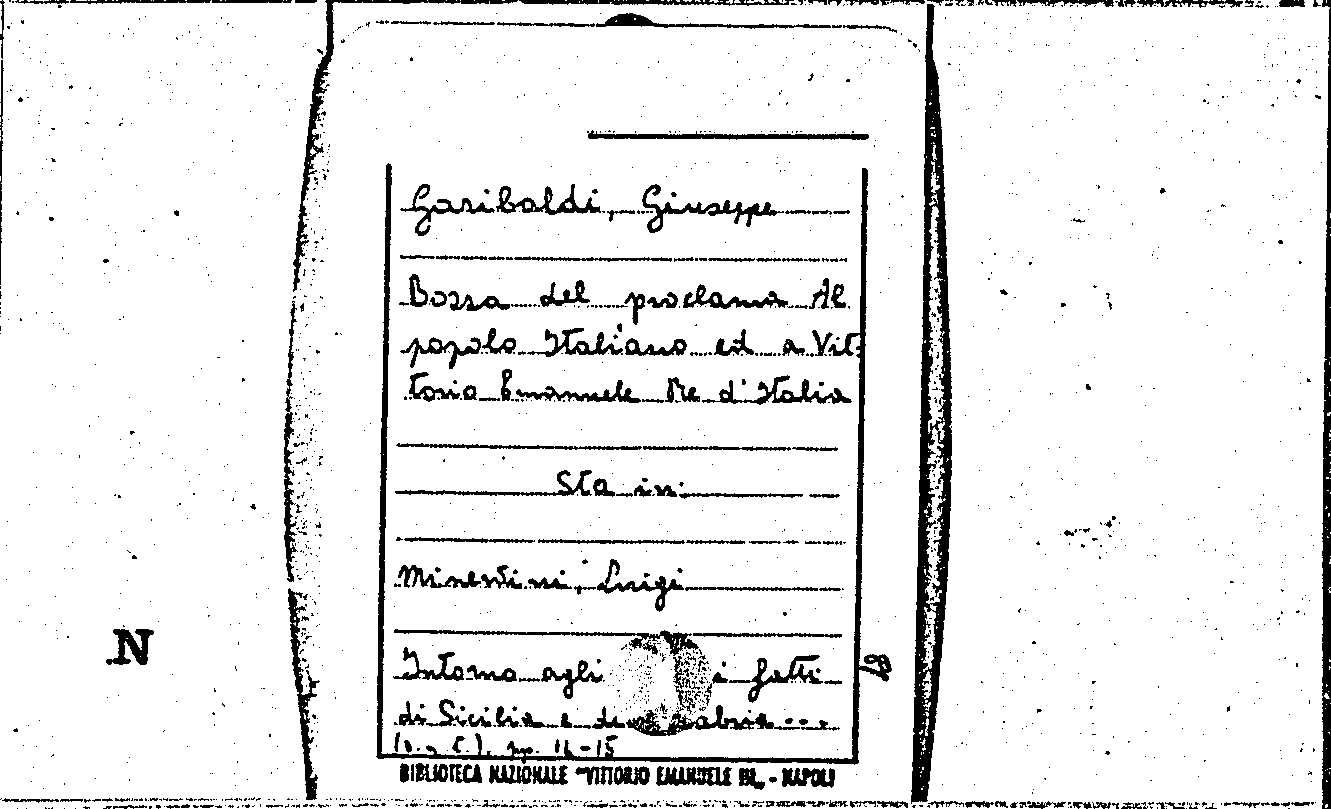 Garibaldi, Giuseppe
Bozza del proclama Al
popolo Italiano ed a Vit-
torio Emanuele Re d'Italia
Sta in:
Minervini, Luigi
Intorno agli i fatti
di Sicilia e
pp. 14-15
BIBLIOTECA NAZIONALE "VITTORIO EMANUELE III" - NAPOLI
N